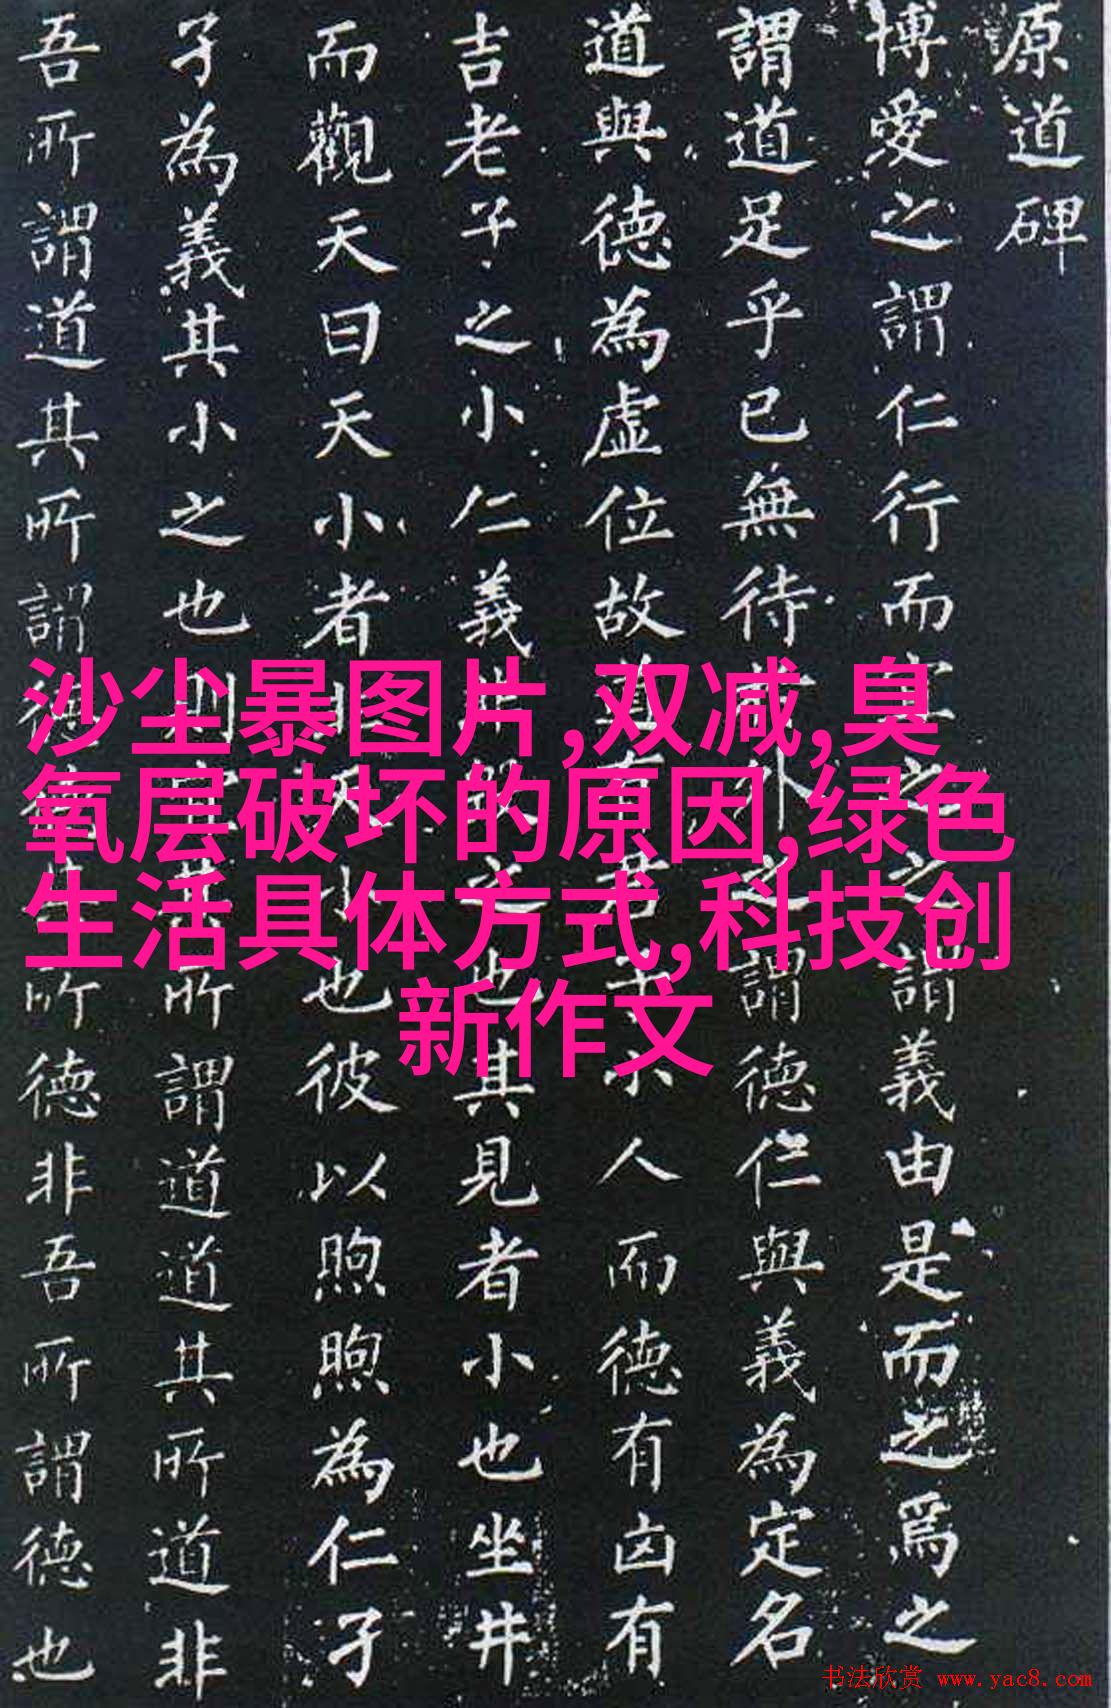 原道碑
博愛之謂仁行而宜之之謂義由是而之焉之
謂道足乎已無待於外之謂德仁與義為定名
道與德為虛位故道有君子小人而德有凶有
吉老子之小仁義非毀之也其見者小也坐井
而觀天曰天小者非天小也彼以煦煦為仁孑
孑為義其小之也則宜其所謂道道其所道非
吾所謂道其所謂德德其所德非吾所謂德也
沙尘暴图片,双减,臭
氧层破坏的原因,绿色
生活具体方式,科技创
新作文
书法欣赏 www.yac8.com